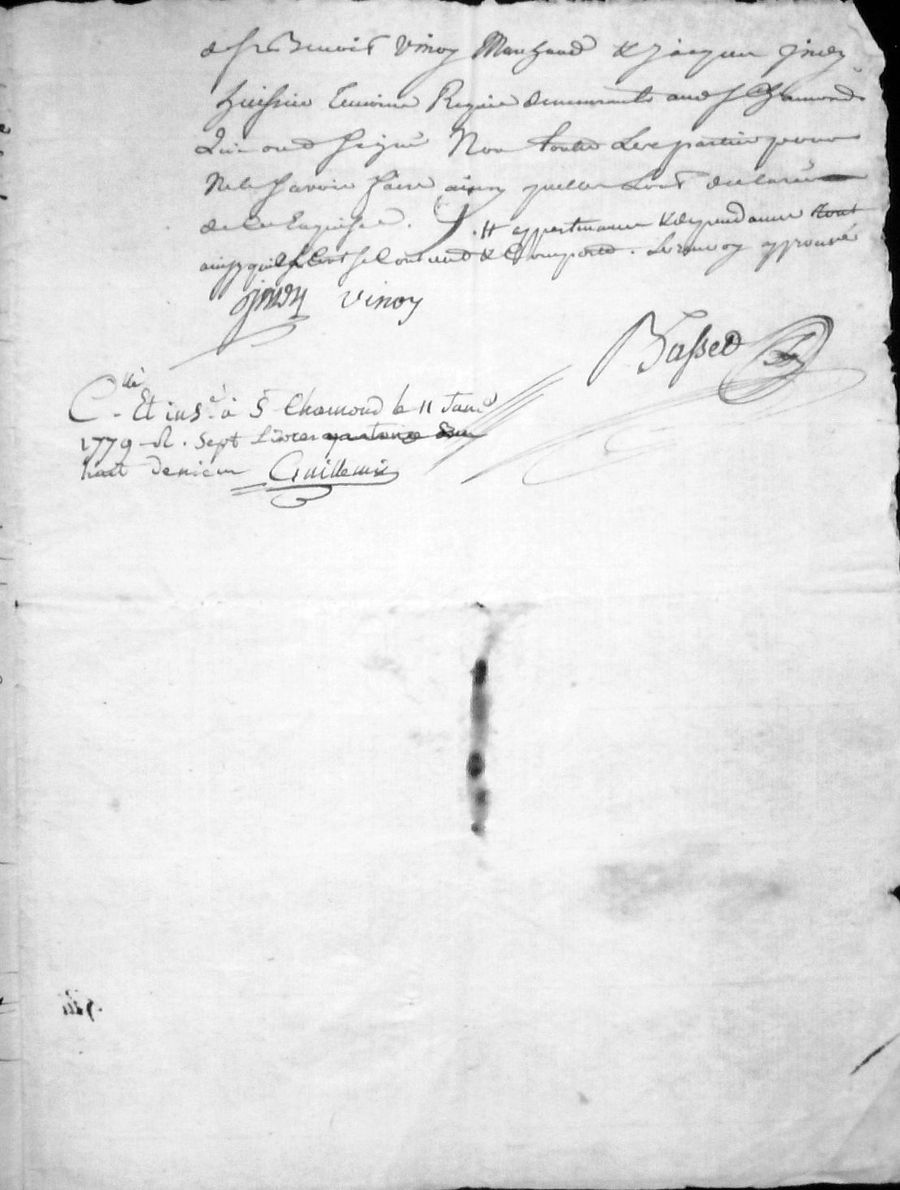 de sr Benoit Vinoy Marchand & jacques jinez
huissier Temoins Requis demeurants aud st Chamond
Qui ont signé Non toutes Les parties pour
Ne le savoir faire ainsy quelles L'ont declaré
de ce Enquises. # appartenances & dependances tout
ainsy quil se Contient & Comporte. Le renvoy approuvé
Vinoy
Basset
C.llé Et ins.é à St Chamond le 11 Janv.
1779 R. sept Livres quatorze sous
huit deniers Guillemin